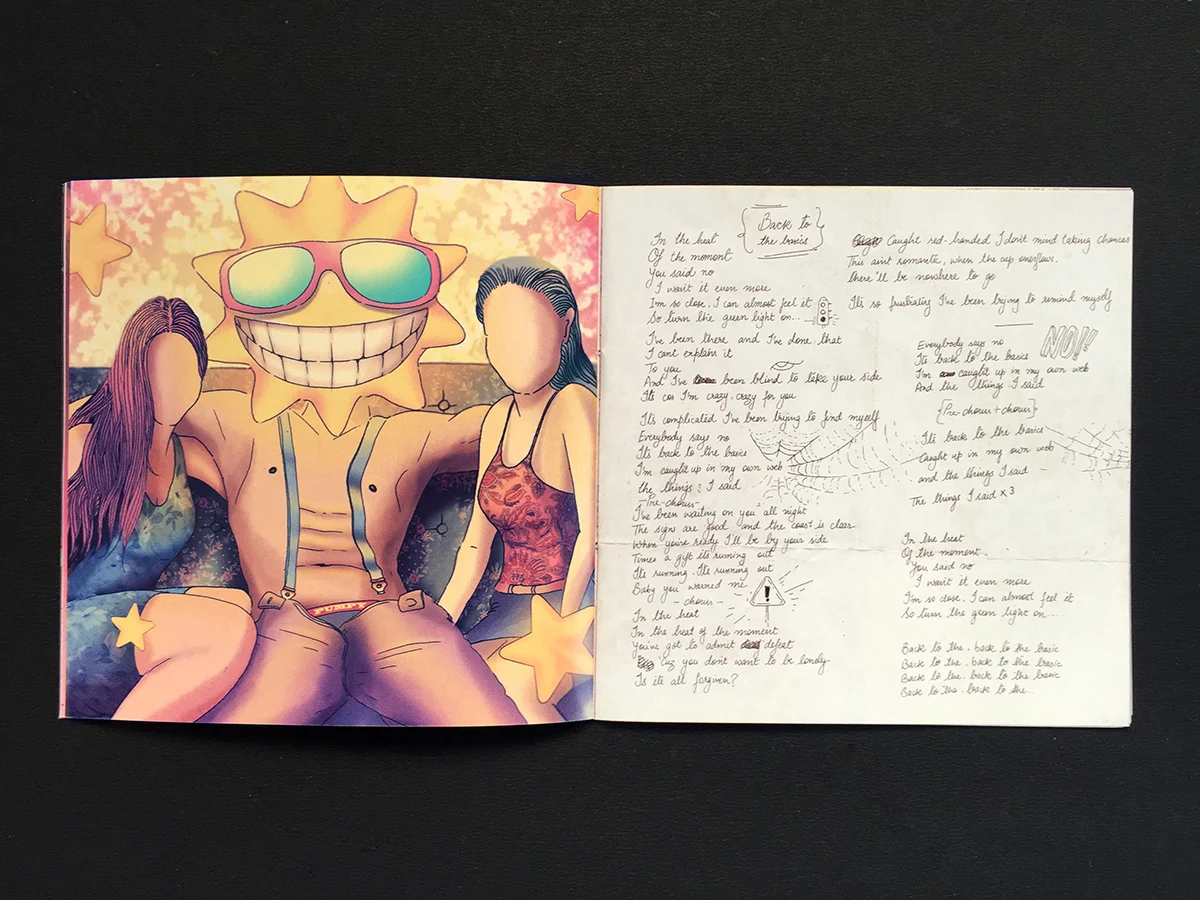 Back to
the basics
In the heat
Of the moment
You said no
I want it even more
Im so close, I can almost feel it
So turn the green light on...
I've been there and I've done that
I cant explain it
To you
And I've been blind to take your side
Its cos I'm crazy, crazy for you
Its complicated I've been trying to find myself
Everybody says no
Its back to the basics
I'm caught up in my own web
the things I said
-Pre-chorus-
I've been waiting on you all night
The signs are good and the coast is clear
When you're ready I'll be by your side
Times a gift its running out
Its running. Its running out
Baby you warned me
- chorus -
In the heat
In the heat of the moment
You've got to admit defeat
'Cuz you don't want to be lonely
Is its all forgiven?
Caught red-handed I don't mind taking chances
This aint romantic, when the cup overflows.
there'll be nowhere to go
Its so frustrating I've been trying to remind myself
NO!!
Everybody says no
Its back to the basics
I'm caught up in my own web
And the things I said
{Pre-chorus + chorus}
Its back to the basics
caught up in my own web
and the things I said -
The things I said x3
In the heat
Of the moment.
You said no
I want it even more
I'm so close, I can almost feel it
So turn the green light on...
Back to the, back to the basic
Back to the, back to the basic
Back to the, back to the basic
Back to the, back to the..